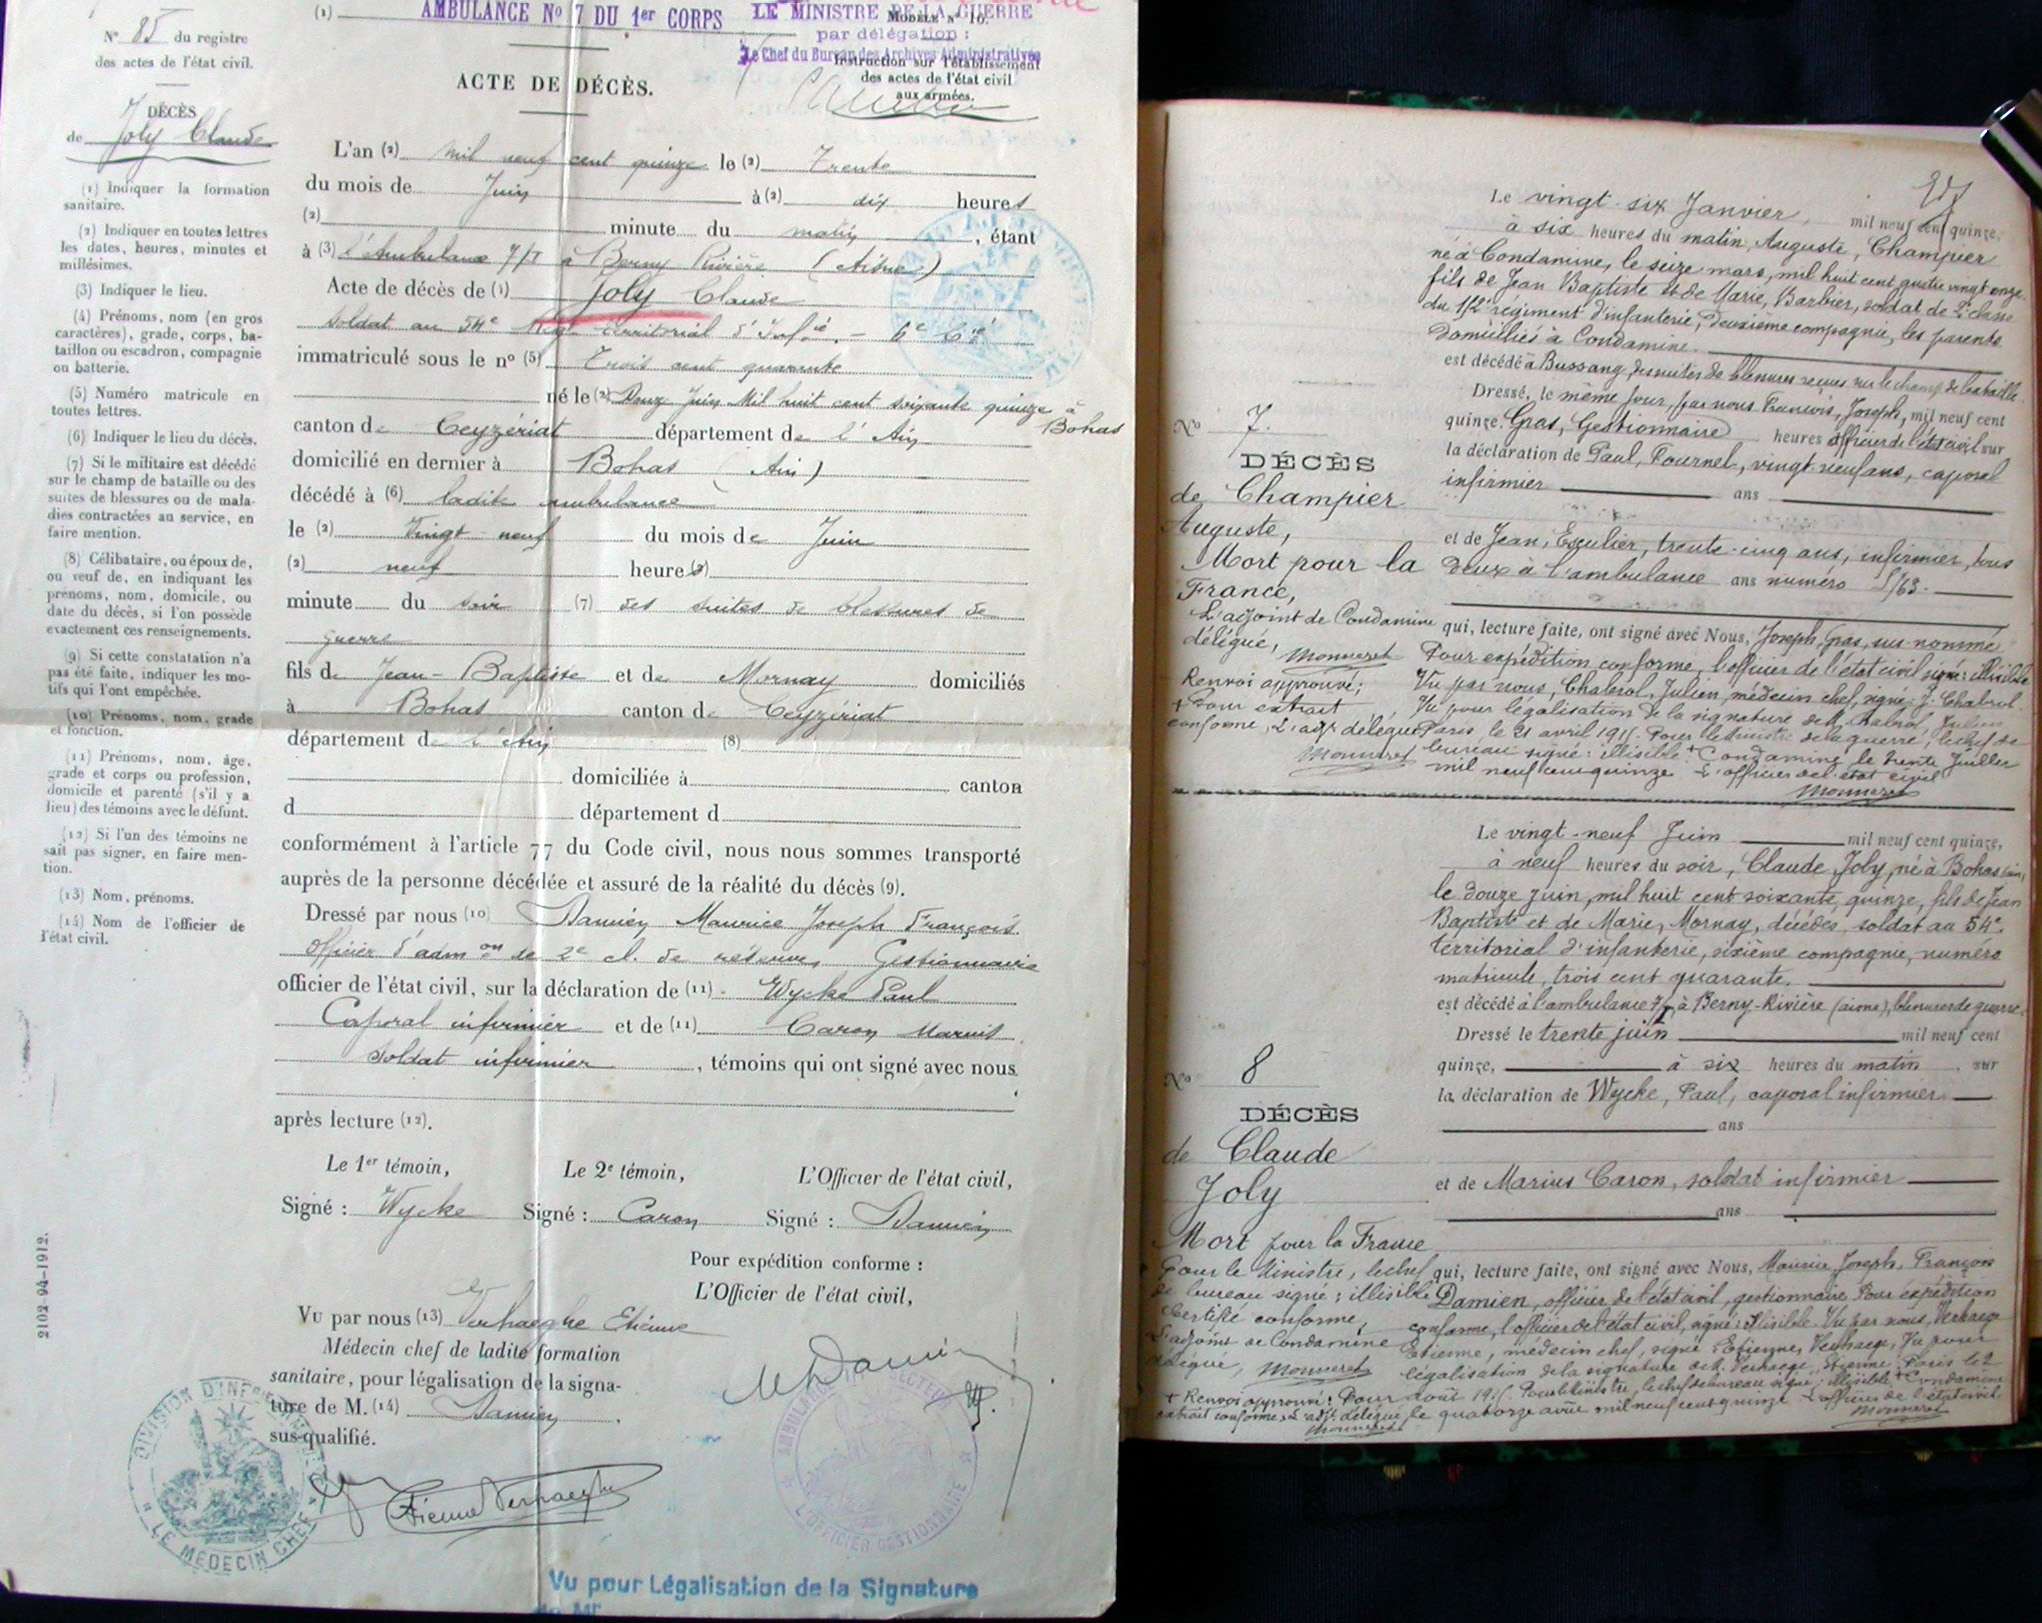 (1) AMBULANCE No 7 DU 1er CORPS
LE MINISTRE DE LA GUERRE
MODÈLE N° 16.
par délégation :
Le Chef du Bureau des Archives Administratives
Instruction sur l'établissement
des actes de l'état civil
aux armées.
N° 85 du registre
des actes de l'état civil.
DÉCÈS
de Joly Claude
(1) Indiquer la formation
sanitaire.
(2) Indiquer en toutes lettres
les dates, heures, minutes et
millésimes.
(3) Indiquer le lieu.
(4) Prénoms, nom (en gros
caractères), grade, corps, ba-
taillon ou escadron, compagnie
ou batterie.
(5) Numéro matricule en
toutes lettres.
(6) Indiquer le lieu du décès.
(7) Si le militaire est décédé
sur le champ de bataille ou des
suites de blessures ou de mala-
dies contractées au service, en
faire mention.
(8) Célibataire, ou époux de,
ou veuf de, en indiquant les
prénoms, nom, domicile, ou
date du décès, si l'on possède
exactement ces renseignements.
(9) Si cette constatation n'a
pas été faite, indiquer les mo-
tifs qui l'ont empêchée.
(10) Prénoms, nom, grade
et fonction.
(11) Prénoms, nom, âge,
grade et corps ou profession,
domicile et parenté (s'il y a
lieu) des témoins avec le défunt.
(12) Si l'un des témoins ne
sait pas signer, en faire men-
tion.
(13) Nom, prénoms.
(14) Nom de l'officier de
l'état civil.
2102-94-1912.
ACTE DE DÉCÈS.
L'an (2) mil neuf cent quinze le (2) Trente
du mois de Juin à (2) dix heures
(2) minute du matin, étant
à (3) l'Ambulance 7/1 à Berny Rivière (Aisne)
Acte de décès de (4) Joly Claude
soldat au 54e Régt territorial d'Infie. - 6e Cie
immatriculé sous le n° (5) Trois cent quarante
né le (2) Douze Juin Mil huit cent soixante quinze à
Bohas
canton de Ceyzériat département de l'Ain
domicilié en dernier à Bohas (Ain)
décédé à (6) ladite ambulance
le (2) Vingt-neuf du mois de Juin
(2) neuf heure (2)
minute du soir (7) des suites de blessures de
guerre
fils de Jean-Baptiste et de Mornay domiciliés
à Bohas canton de Ceyzériat
département de l'Ain (8)
domiciliée à canton
d département d
conformément à l'article 77 du Code civil, nous nous sommes transporté
auprès de la personne décédée et assuré de la réalité du décès (9).
Dressé par nous (10) Damien Maurice Joseph François
officier d'admon de 2e cl. de réserve, Gestionnaire
officier de l'état civil, sur la déclaration de (11) Wycke Paul
Caporal infirmier et de (11) Caron Marius
soldat infirmier, témoins qui ont signé avec nous
après lecture (12).
Le 1er témoin, Le 2e témoin, L'Officier de l'état civil,
Signé : Wycke Signé : Caron Signé : Damien
Pour expédition conforme :
L'Officier de l'état civil,
Vu par nous (13) Verhaeghe Etienne
Médecin chef de ladite formation
sanitaire, pour légalisation de la signa-
ture de M. (14) Damien
sus-qualifié.
Etienne Verhaeghe
LE MEDECIN CHEF
L'OFFICIER GESTIONNAIRE
Vu pour Légalisation de la Signature
de Mr
Le vingt-six Janvier, mil neuf cent quinze,
à six heures du matin, Auguste, Champier
né à Condamine, le seize mars, mil huit cent quatre vingt onze
fils de Jean Baptiste et de Marie, Barbier, soldat de 2e classe
du 152e régiment d'infanterie, deuxième compagnie, les parents
domiciliés à Condamine.
est décédé à Bussang, des suites de blessures reçues sur le champ de bataille.
Dressé, le même jour, par nous François, Joseph, mil neuf cent
quinze, Gras, Gestionnaire heures officier de l'état civil sur
la déclaration de Paul, Fournel, vingt-neuf ans, caporal
infirmier ans
et de Jean, Escudier, trente-cinq ans, infirmier, tous
deux à l'ambulance ans numéro 5/63.
qui, lecture faite, ont signé avec Nous, Joseph, Gras, sus-nommé
Pour expédition conforme, l'officier de l'état civil signé : illisible
Vu par nous, Chabrol, Julien, médecin chef, signé : J. Chabrol.
Vu pour légalisation de la signature de M. Chabrol, Julien
Paris, le 21 avril 1915. Pour le ministre de la guerre, le chef de
bureau signé : illisible + Condamine le trente Juillet
mil neuf cent quinze L'officier de l'état civil
Monneret
N° 7.
DÉCÈS
de Champier
Auguste,
Mort pour la
France,
L'adjoint de Condamine
délégué,
Monneret
Renvoi approuvé ;
+ Pour extrait
conforme, L'adjt délégué
Monneret
Le vingt-neuf Juin mil neuf cent quinze,
à neuf heures du soir, Claude, Joly, né à Bohas (ain)
le douze juin, mil huit cent soixante quinze, fils de Jean
Baptiste et de Marie, Mornay, décédés, soldat au 54e
territorial d'infanterie, sixième compagnie, numéro
matricule, trois cent quarante.
est décédé à l'ambulance 7/1 à Berny-Rivière (aisne), blessures de guerre.
Dressé le trente juin mil neuf cent
quinze, à six heures du matin, sur
la déclaration de Wycke, Paul, caporal infirmier
ans
et de Marius Caron, soldat infirmier
ans
qui, lecture faite, ont signé avec Nous, Maurice, Joseph, François
Damien, officier de l'état civil, gestionnaire Pour expédition
conforme, l'officier de l'état civil, signé : illisible. Vu par nous, Verhaege
Etienne, médecin chef, signé : Etienne, Verhaege, Vu pour
légalisation de la signature de M. Verhaege, Etienne, Paris le 2
août 1915. Pour le Ministre, le chef de bureau signé : illisible + Condamine
le quatorze août mil neuf cent quinze L'officier de l'état civil
Monneret
N° 8
DÉCÈS
de Claude
Joly
Mort pour la France
Pour le Ministre, le chef
de bureau signé : illisible
Certifié conforme,
L'adjoint de Condamine
délégué, Monneret
+ Renvoi approuvé : Pour
extrait conforme, L'adjt délégué
Monneret